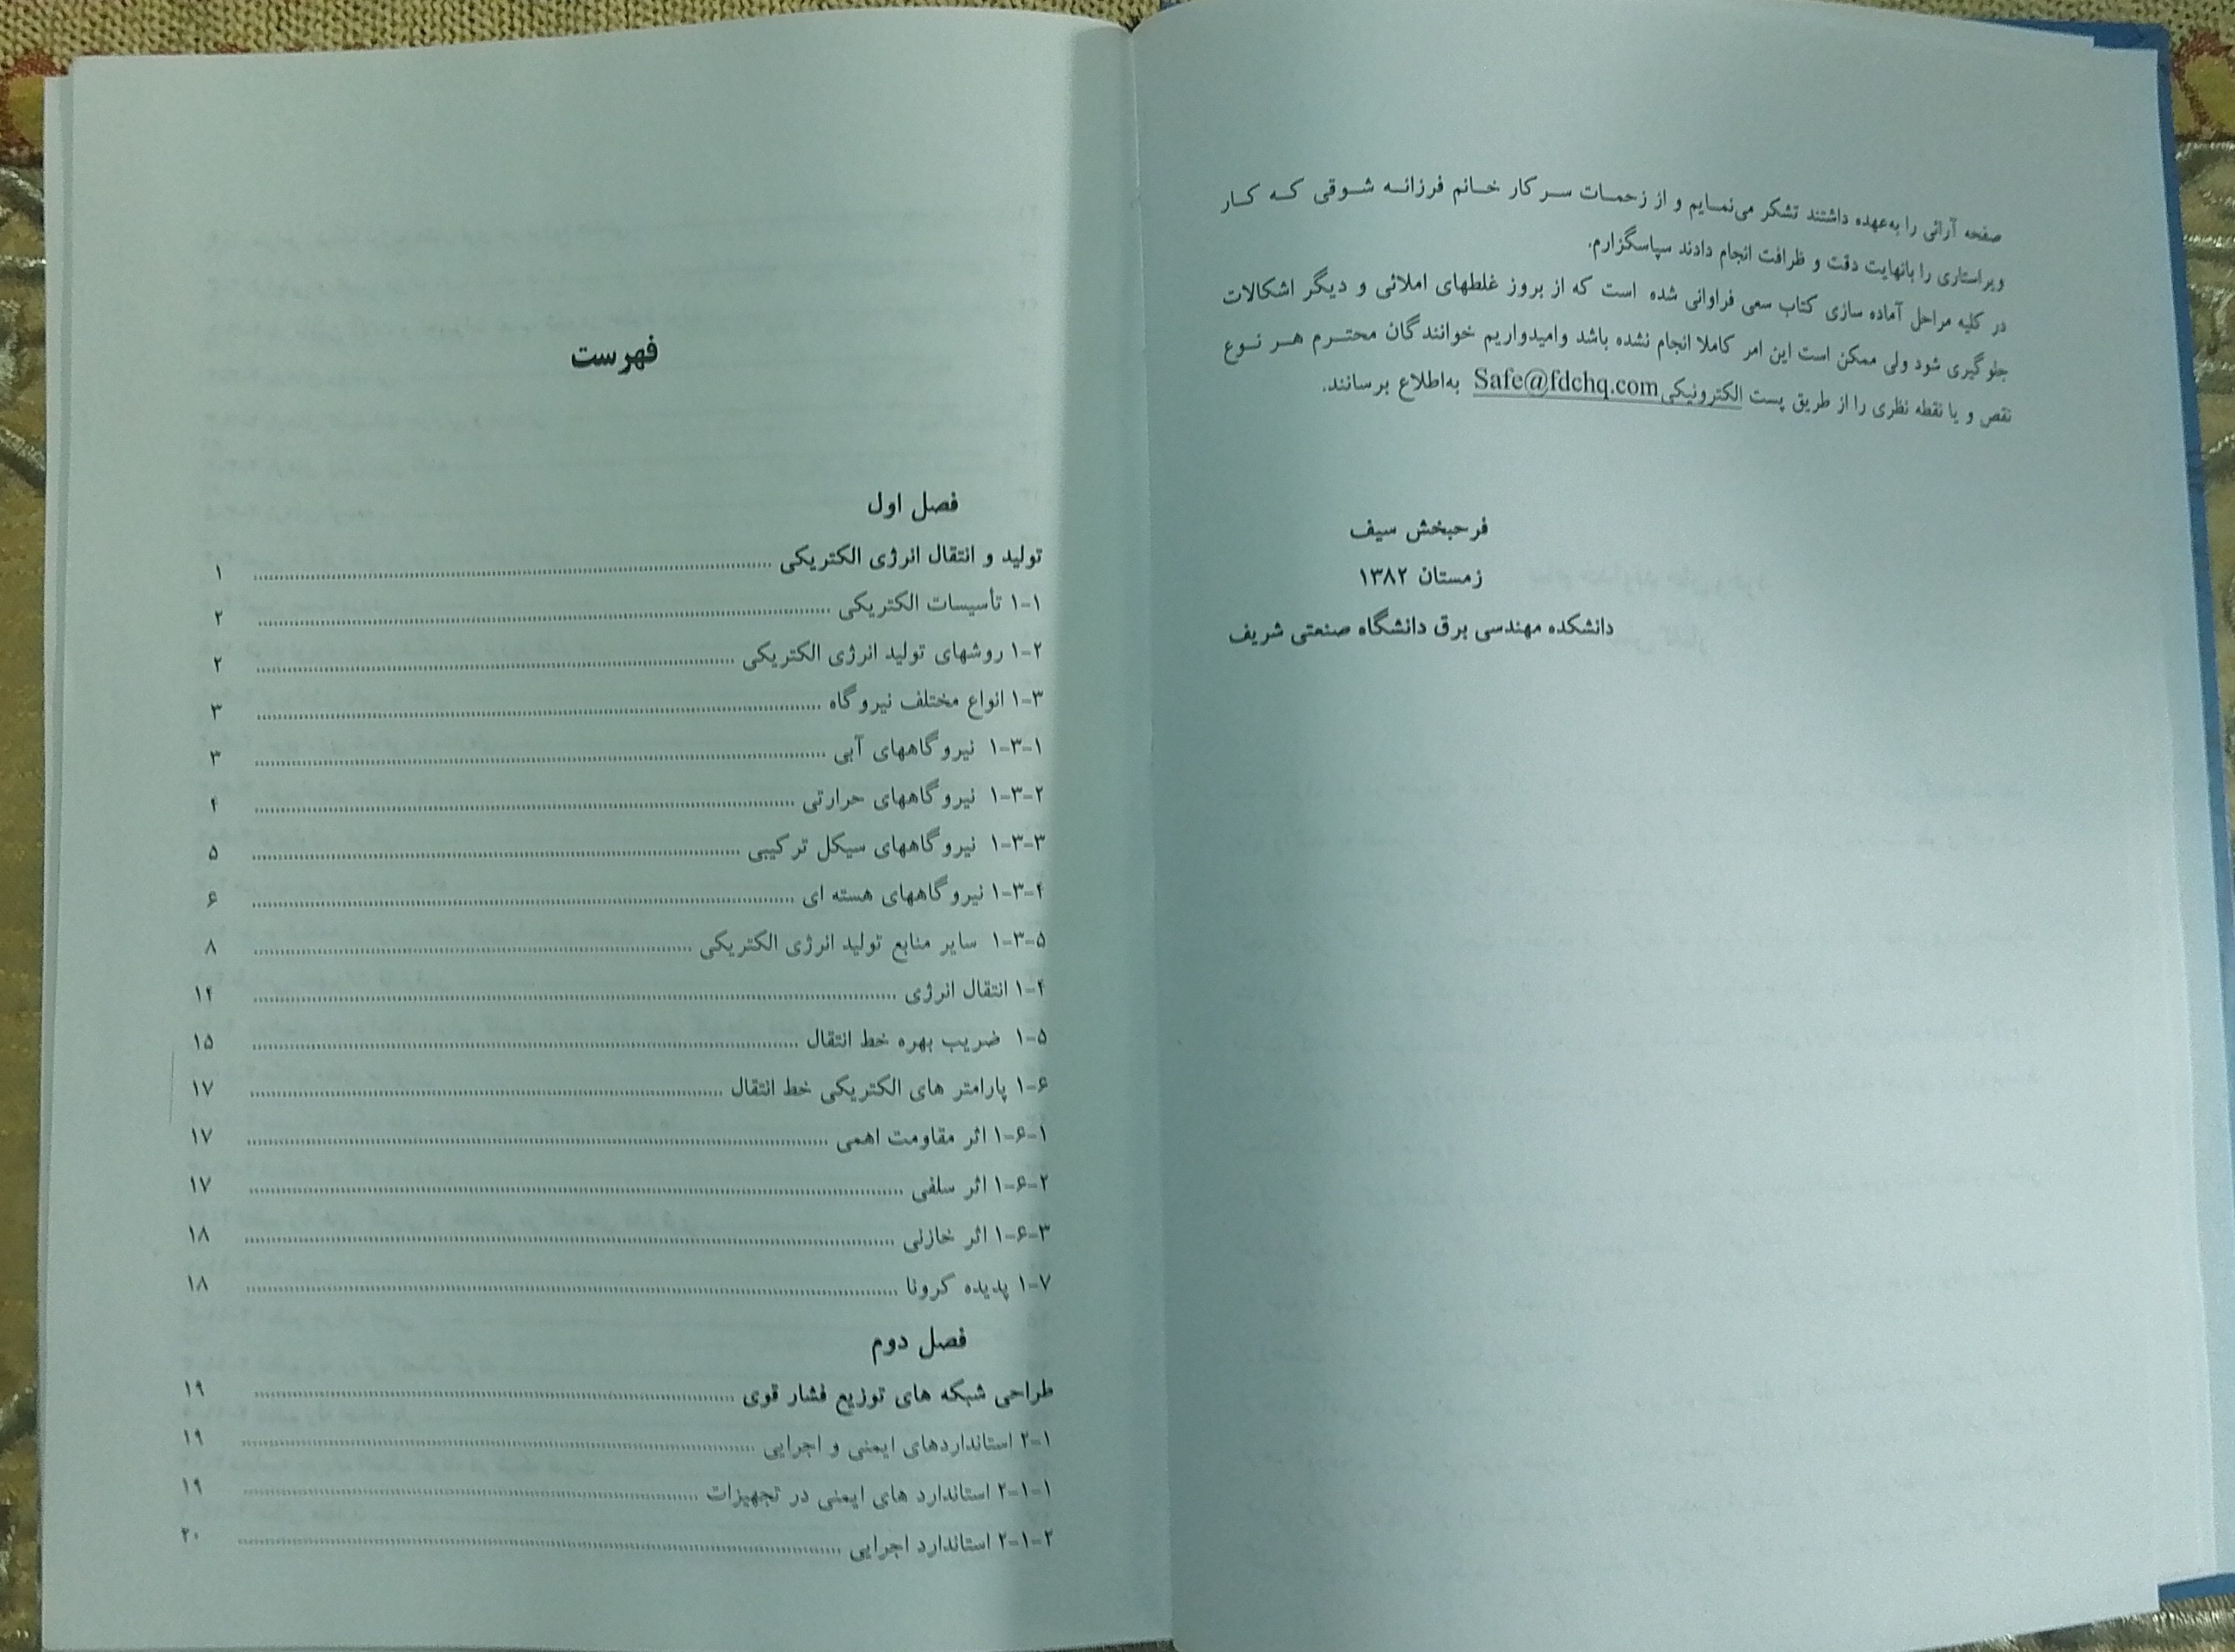 صفحه آرائی را به‌عهده داشتند تشکر می‌نمایم و از زحمات سرکار خانم فرزانه شوقی که کار
ویراستاری را بانهایت دقت و ظرافت انجام دادند سپاسگزارم.
در کلیه مراحل آماده سازی کتاب سعی فراوانی شده است که از بروز غلطهای املائی و دیگر اشکالات
جلوگیری شود ولی ممکن است این امر کاملا انجام نشده باشد وامیدواریم خوانندگان محترم هر نوع
نقص و یا نقطه نظری را از طریق پست الکترونیکی Safe@fdchq.com به‌اطلاع برسانند.
فرحبخش سیف
زمستان ۱۳۸۲
دانشکده مهندسی برق دانشگاه صنعتی شریف
فهرست
فصل اول
تولید و انتقال انرژی الکتریکی ........ ۱
۱-۱ تأسیسات الکتریکی ........ ۲
۱-۲ روشهای تولید انرژی الکتریکی ........ ۲
۱-۳ انواع مختلف نیروگاه ........ ۳
۱-۳-۱ نیروگاههای آبی ........ ۳
۱-۳-۲ نیروگاههای حرارتی ........ ۴
۱-۳-۳ نیروگاههای سیکل ترکیبی ........ ۵
۱-۳-۴ نیروگاههای هسته ای ........ ۶
۱-۳-۵ سایر منابع تولید انرژی الکتریکی ........ ۸
۱-۴ انتقال انرژی ........ ۱۴
۱-۵ ضریب بهره خط انتقال ........ ۱۵
۱-۶ پارامتر های الکتریکی خط انتقال ........ ۱۷
۱-۶-۱ اثر مقاومت اهمی ........ ۱۷
۱-۶-۲ اثر سلفی ........ ۱۷
۱-۶-۳ اثر خازنی ........ ۱۸
۱-۷ پدیده کرونا ........ ۱۸
فصل دوم
طراحی شبکه های توزیع فشار قوی ........ ۱۹
۲-۱ استانداردهای ایمنی و اجرایی ........ ۱۹
۲-۱-۱ استاندارد های ایمنی در تجهیزات ........ ۱۹
۲-۱-۲ استاندارد اجرایی ........ ۲۰